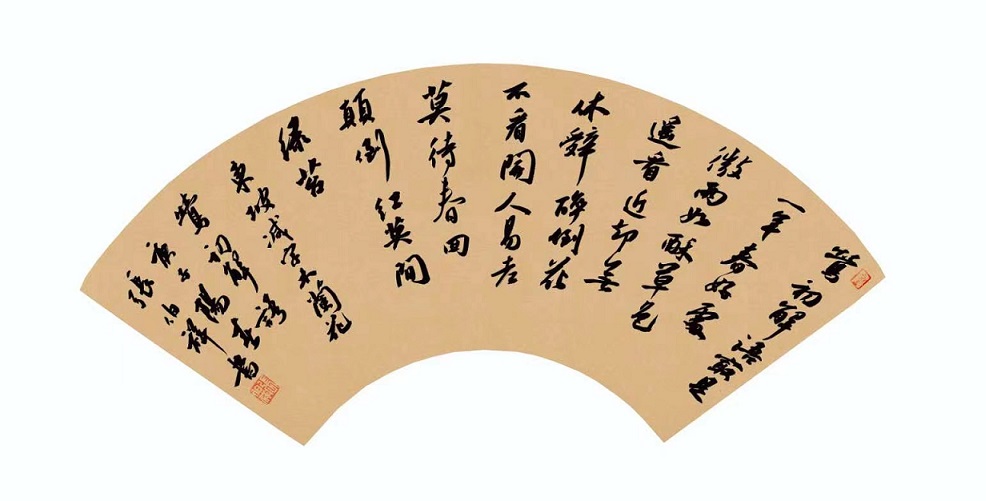 鶯初解語最是
一年春好處
微雨如酥草色
遥看近却無
休辭醉倒花
不看開人易老
莫待春回
顛倒紅英間
綠苔
東坡減字木蘭花
鶯初解語
庚子陽春
張伯祥書